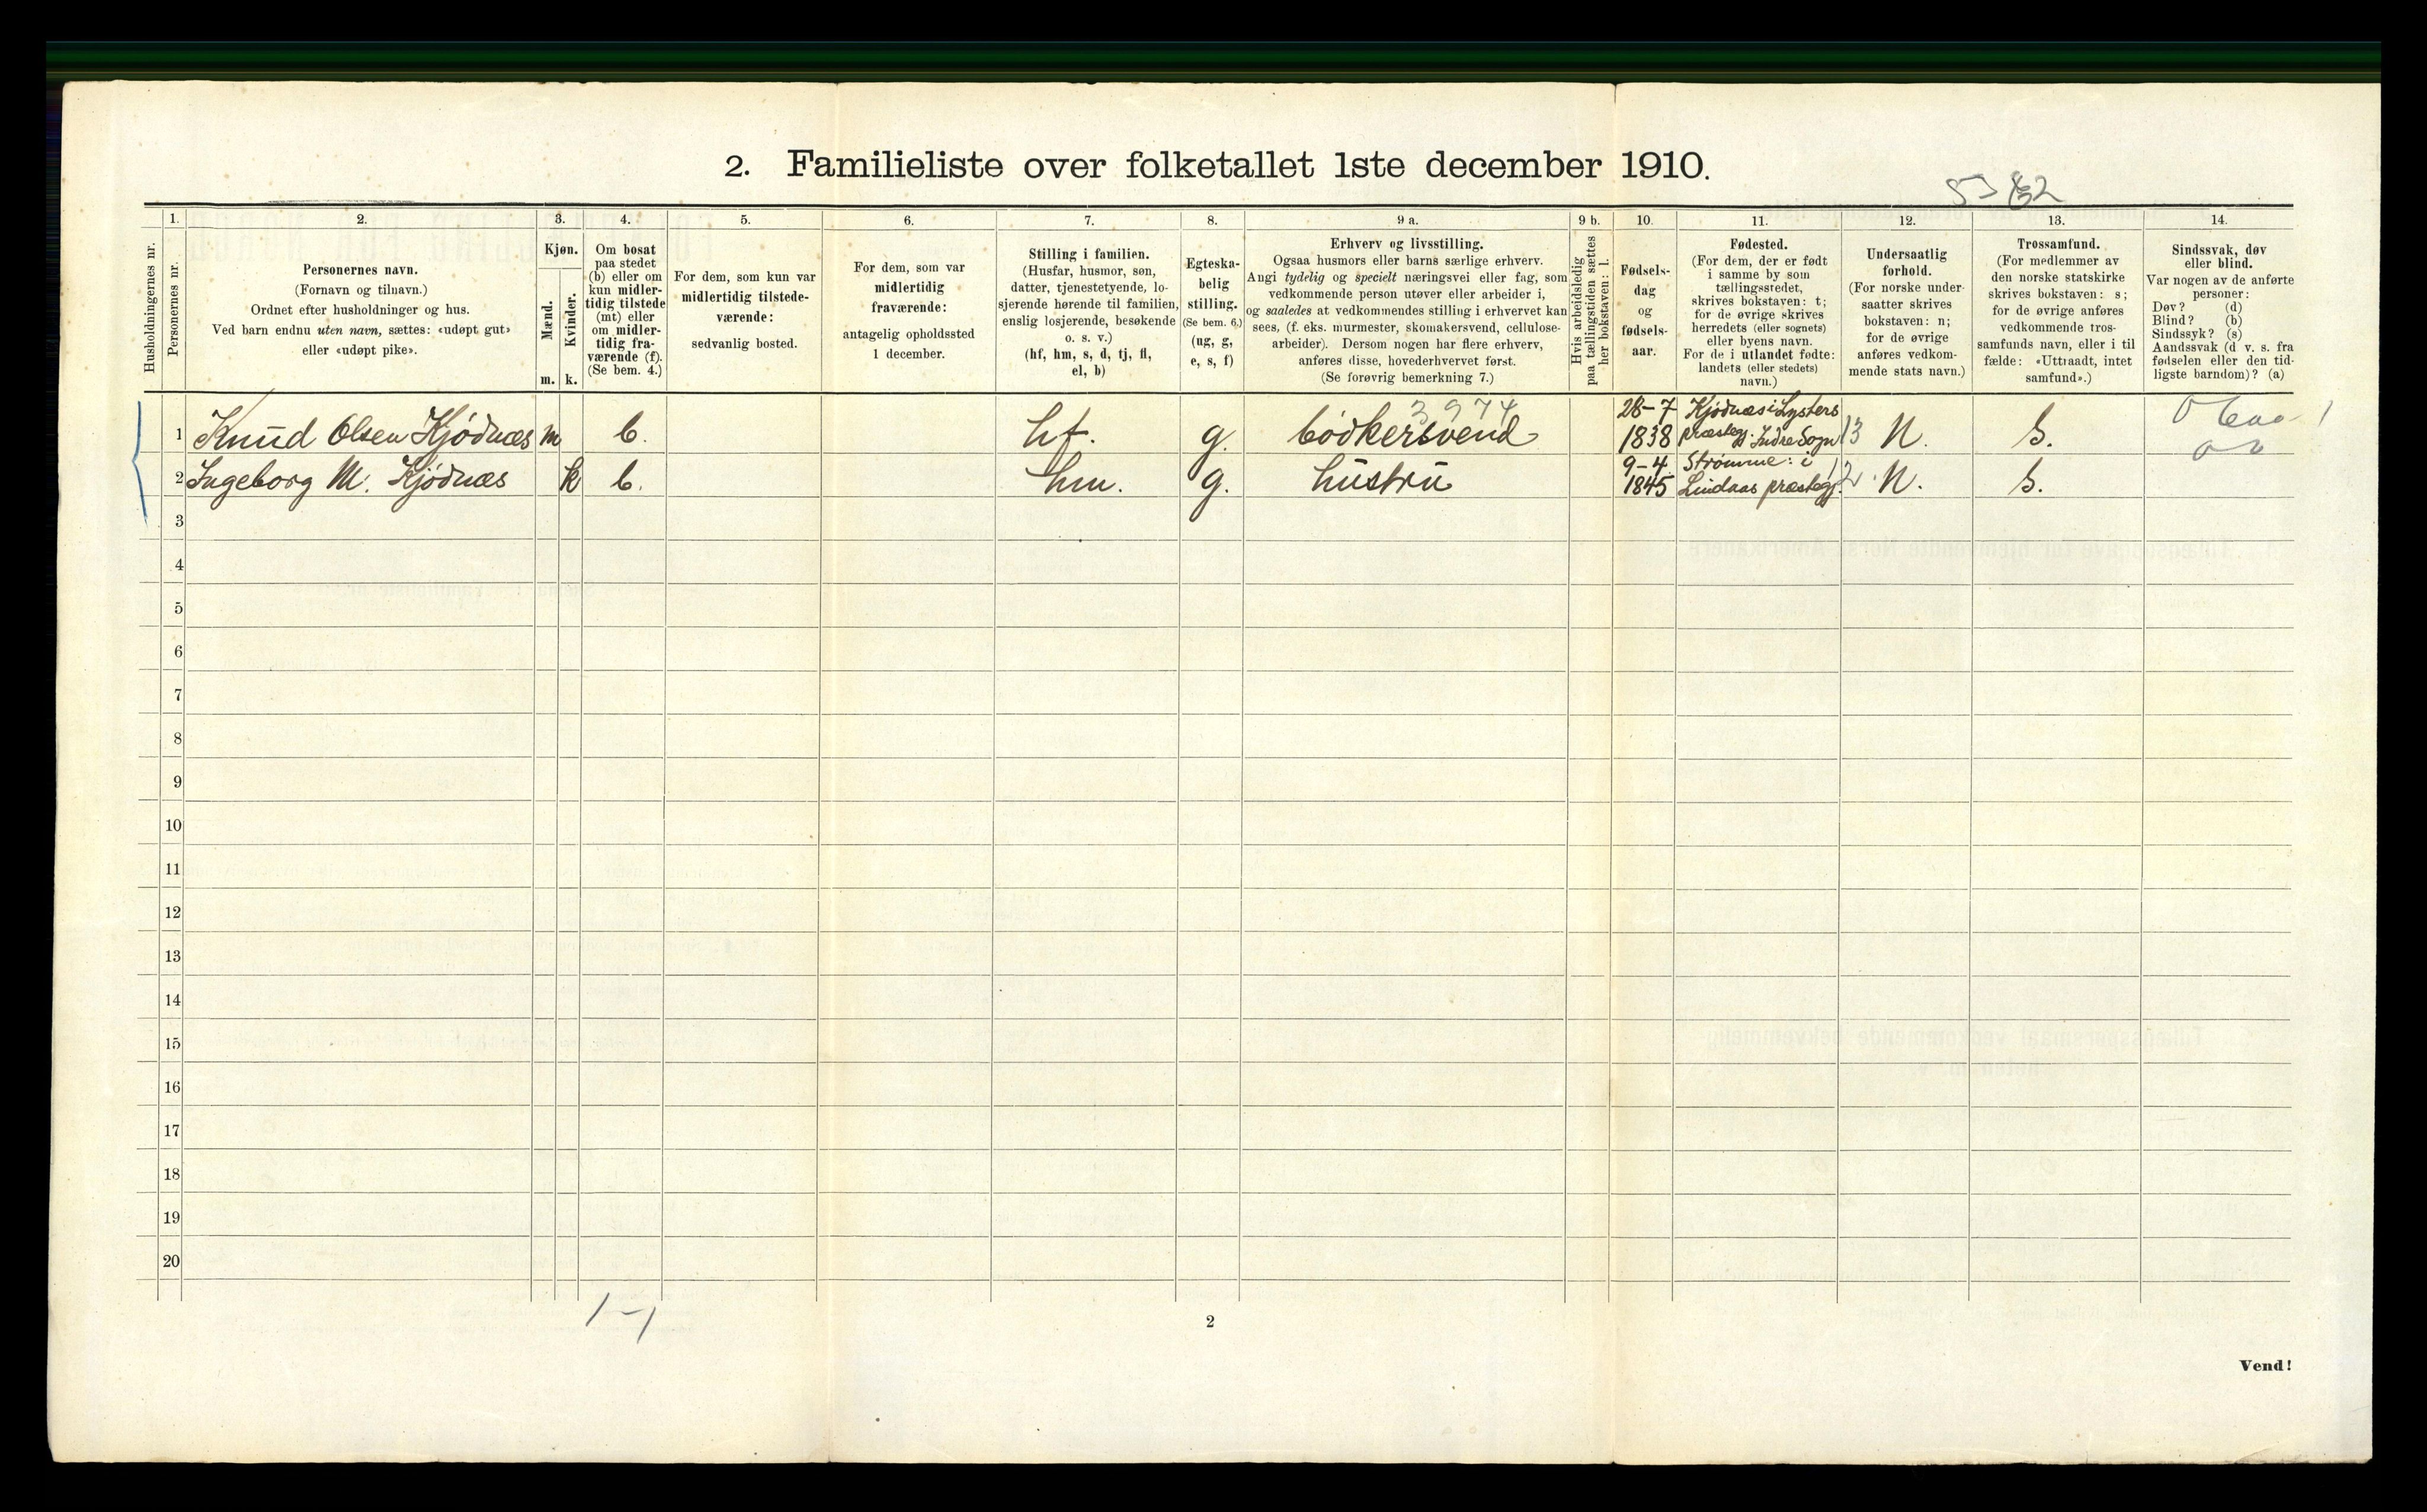 2. Familieliste over folketallet 1ste december 1910.
Husholdningernes nr.
1.
Personernes nr.
2.
Personernes navn.
(Fornavn og tilnavn.)
Ordnet efter husholdninger og hus.
Ved barn endnu uten navn, sættes: «udøpt gut»
eller «udøpt pike».
3.
Kjøn.
Mænd.
Kvinder.
m.
k.
4.
Om bosat
paa stedet
(b) eller om
kun midler-
tidig tilstede
(mt) eller
om midler-
tidig fra-
værende (f).
(Se bem. 4.)
5.
For dem, som kun var
midlertidig tilstede-
værende:
sedvanlig bosted.
6.
For dem, som var
midlertidig
fraværende:
antagelig opholdssted
1 december.
7.
Stilling i familien.
(Husfar, husmor, søn,
datter, tjenestetyende, lo-
sjerende hørende til familien,
enslig losjerende, besøkende
o. s. v.)
(hf, hm, s, d, tj, fl,
el, b)
8.
Egteska-
belig
stilling.
(Se bem. 6.)
(ug, g,
e, s, f)
9 a.
Erhverv og livsstilling.
Ogsaa husmors eller barns særlige erhverv.
Angi tydelig og specielt næringsvei eller fag, som
vedkommende person utøver eller arbeider i,
og saaledes at vedkommendes stilling i erhvervet kan
sees, (f. eks. murmester, skomakersvend, cellulose-
arbeider). Dersom nogen har flere erhverv,
anføres disse, hovederhvervet først.
(Se forøvrig bemerkning 7.)
9 b.
Hvis arbeidsledig
paa tællingstiden sættes
her bokstaven: l.
10.
Fødsels-
dag
og
fødsels-
aar.
11.
Fødested.
(For dem, der er født
i samme by som
tællingsstedet,
skrives bokstaven: t;
for de øvrige skrives
herredets (eller sognets)
eller byens navn.
For de i utlandet fødte:
landets (eller stedets)
navn.)
12.
Undersaatlig
forhold.
(For norske under-
saatter skrives
bokstaven: n;
for de øvrige
anføres vedkom-
mende stats navn.)
13.
Trossamfund.
(For medlemmer av
den norske statskirke
skrives bokstaven: s;
for de øvrige anføres
vedkommende tros-
samfunds navn, eller i til
fælde: «Uttraadt, intet
samfund».)
14.
Sindssvak, døv
eller blind.
Var nogen av de anførte
personer:
Døv? (d)
Blind? (b)
Sindssyk? (s)
Aandssvak (d v. s. fra
fødselen eller den tid-
ligste barndom)? (a)
1 Knud Olsen Kjødnæs m b. hf. g. bødkersvend 3974 28-7 1838 Kjødnæs i Lysters præsteg. Indre Sogn 13 N. S.
2 Ingeborg M. Kjødnæs k b. hm. g. hustru 9-4. 1845 Strømme: i Lindaas præstegj. 12 N. S.
3
4
5
6
7
8
9
10
11
12
13
14
15
16
17
18
19
20
1-1
2
Vend!